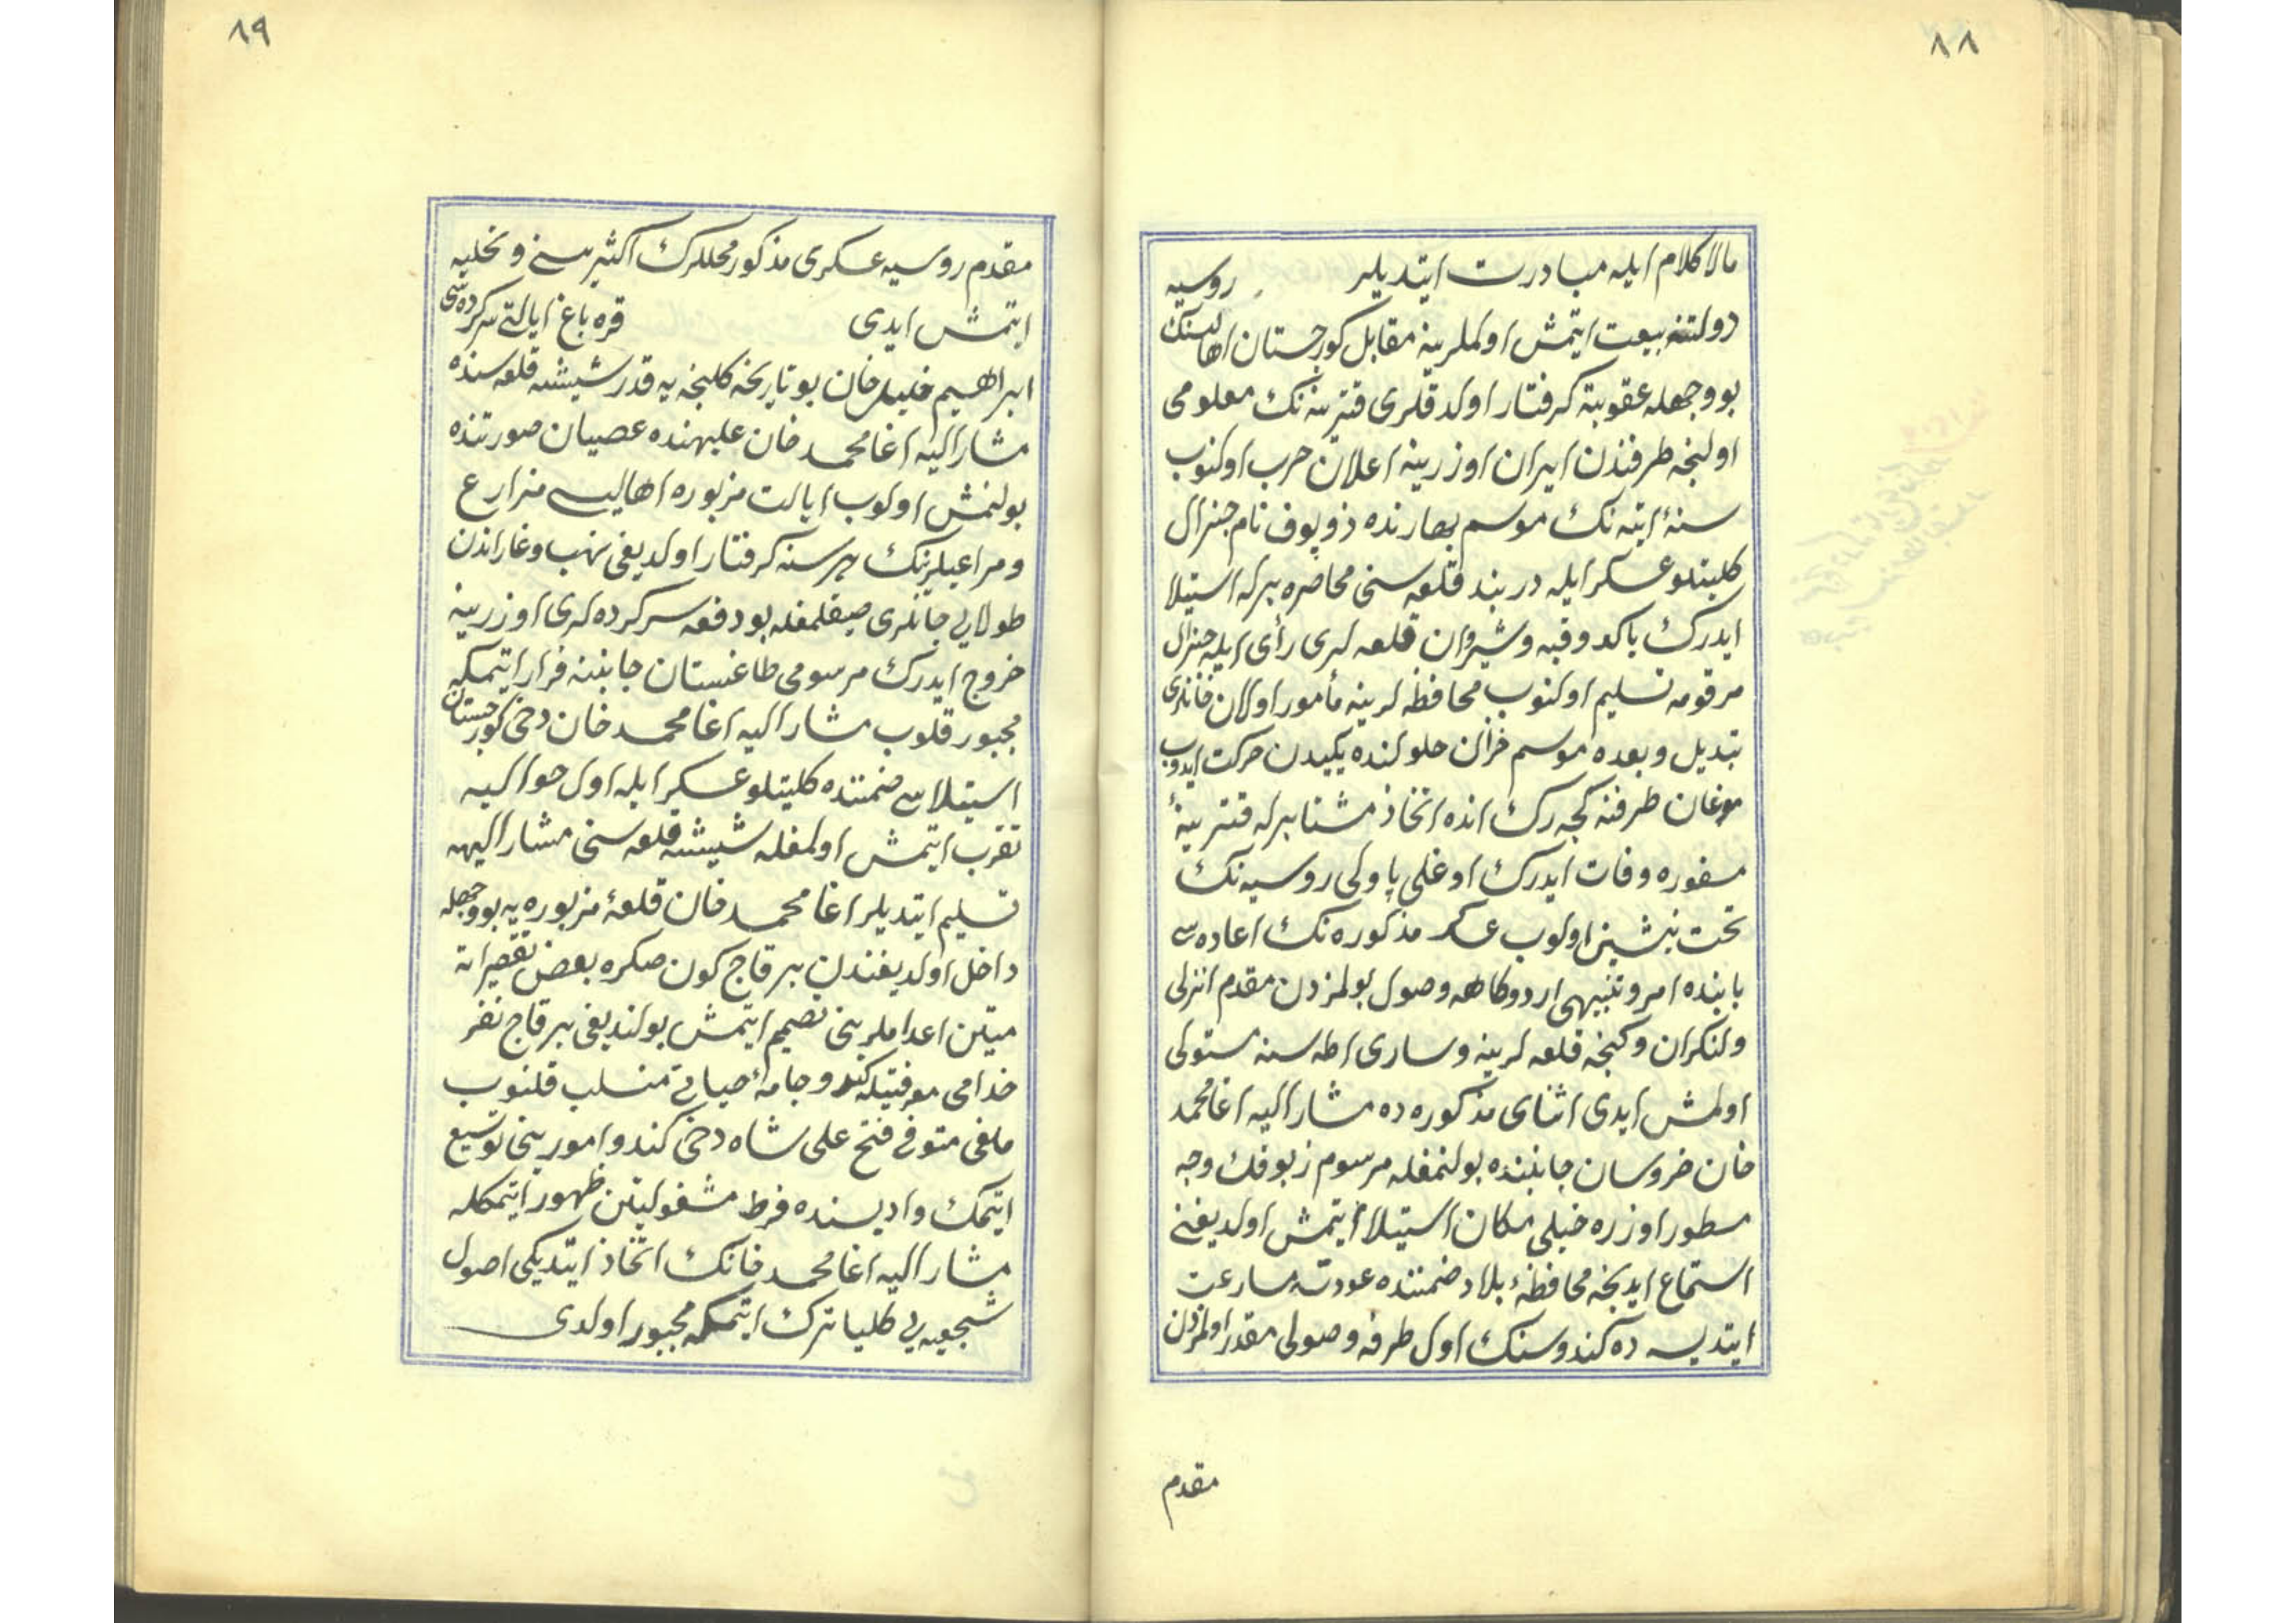 ٨٨
مالا کلام ایله مبادرت ایتدیلر روسیه
دولتنه بیعت ایتمش اولملرینه مقابل کورجستان اهالیسنک
بو وجهله عقوبته کرفتار اولدقلری قترینه نک معلومی
اولنجه طرفندن ایران اوزرینه اعلان حرب اولنوب
سنهٔ اتیه نک موسم بهارنده زوبوف نام جنرال
کلیتلو عسکر ایله دربند قلعه سنی محاصره برله استیلا
ایدرک باکو وقبه وشیروان قلعه لری رأی ایله جنرال
مرقومه تسلیم اولنوب محافظه لرینه مأمور اولان خانلری
تبدیل وبعده موسم خزان حلولنده یکیدن حرکت ایدوب
موغان طرفنه کچه رک انده اتخاذ مشتا برله قترینهٔ
مسفوره وفات ایدرک اوغلی پاولی روسیه نک
تخت نشینی اولوب عسکر مذکوره نک اعاده سی
بابنده امر وتنبیهی اردوکاهه وصول بولمزدن مقدم انزلی
ولنکران وکنجه قلعه لرینه وساری اطه سنه مستولی
اولمش ایدی اثنای مذکوره ده مشار الیه اغا محمد
خان خروسان جانبنده بولنمغله مرسوم زبوفک وجه
مسطور اوزره خیلی مکان استیلا ایتمش اولدیغنی
استماع ایدنجه محافظهٔ بلاد ضمننده عودته مسارعت
ایتدیسه ده کندوسنک اول طرفه وصولی مقدر اولمزدن
مقدم
٨٩
مقدم روسیه عسکری مذکور محللرک اکثریسنی و تخلیه
ایتمش ایدی قره باغ ایالتی سرکرده سی
ابراهیم خلیل خان بو تاریخه کلنجه یه قدر شیشه قلعه سنده
مشار الیه اغا محمد خان علیهنده عصیان صورتنده
بولنمش اولوب ایالت مزبوره اهالیسی مزارع
ومراعیلرینک هر سنه کرفتار اولدیغی نهب وغاراتدن
طولایی جانلری صیقلمغله بو دفعه سرکرده لری اوزرینه
خروج ایدرک مرسومی طاغستان جانبنه فرار ایتمکه
مجبور قلوب مشار الیه اغا محمد خان دخی کورجستان
استیلاسی ضمننده کلیتلو عسکر ایله اول حوالیه
تقرب ایتمش اولمغله شیشه قلعه سنی مشار الیهه
تسلیم ایتدیلر اغا محمد خان قلعهٔ مزبوره یه بو وجهله
داخل اولدیغندن بر قاچ کون صکره بعض تقصیراته
مبتنی اعداملرینی تصمیم ایتمش بولندیغی بر قاچ نفر
خدامی معرفتیله کندو جامهٔ حیاتی منسلب قلنوب
خلفی متوفی فتح علی شاه دخی کندو امورینی توسیع
ایتمک وادیسنده فرط مشغولیتی ظهور ایتمکله
مشار الیه اغا محمد خانک اتخاذ ایتدیکی اصول
شجیعیه یی کلیا ترک ایتمکه مجبور اولدی